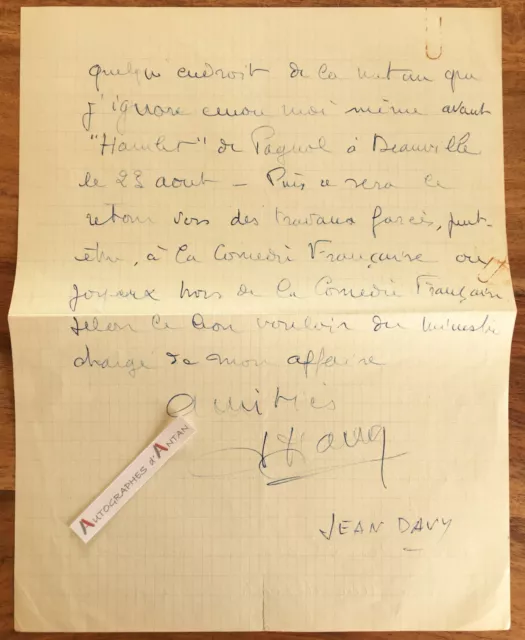 quelque endroit de la nature que
j'ignore encore moi même avant
"Hamlet" de Pagnol à Deauville
le 23 aout - Puis ce sera le
retour vers des travaux forcés, peut-
être, à la Comédie Française ou
joyeux hors de la Comédie Française
selon le bon vouloir du ministre
chargé de mon affaire
Amitiés
JDavy
AUTOGRAPHES d'ANTAN
JEAN DAVY